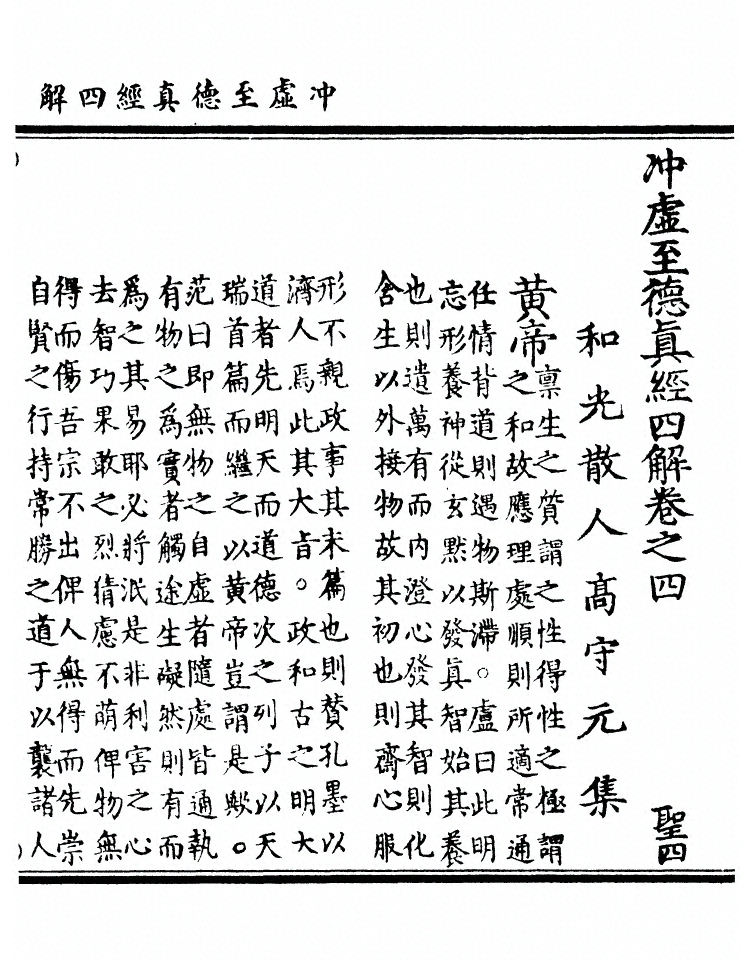 冲虛至德真經四解
冲虛至德真經四解卷之四 聖四
和光散人高守元集
黃帝
稟生之質謂之性得性之極謂
之和故應理處順則所適常通
任情背道則遇物斯滯。盧曰此明
忘形養神從玄默以發真智始其養
也則遺萬有而內澄心發其智則化
含生以外接物故其初也則齋心服
形不親政事其末篇也則贊孔墨以
濟人焉此其大旨。政和古之明大
道者先明天而道德次之列子以天
瑞首篇而繼之以黃帝豈謂是歟。
范曰即無物之自虛者隨處皆通執
有物之為實者觸途生礙然則有而
為之其易耶必將泯是非利害之心
去智巧果敢之烈猜慮不萌俾物無
得而傷吾宗不出俾人無得而先崇
自賢之行持常勝之道于以襲諸人